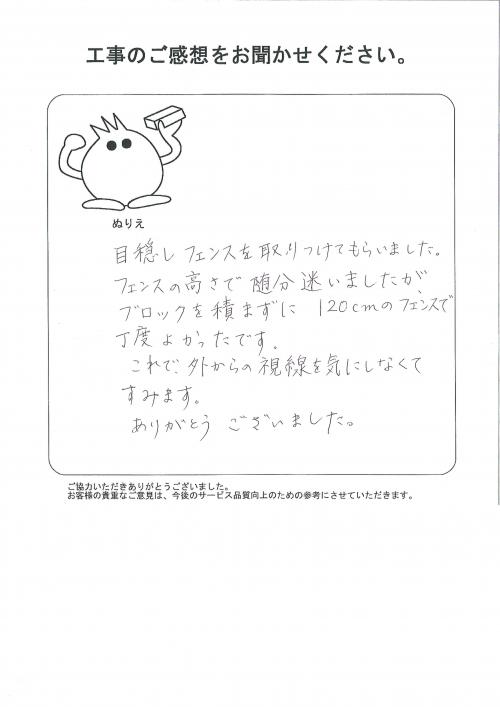 工事のご感想をお聞かせください。
ぬりえ
目穏し フェンスを取りつけてもらいました。
フェンスの高さで 随分迷いましたが、
ブロックを積まずに 120cmのフェンスで
丁度よかったです。
これで、外からの視線を気にしなくて
すみます。
ありがとう ございました。
ご協力いただきありがとうございました。
お客様の貴重なご意見は、今後のサービス品質向上のための参考にさせていただきます。